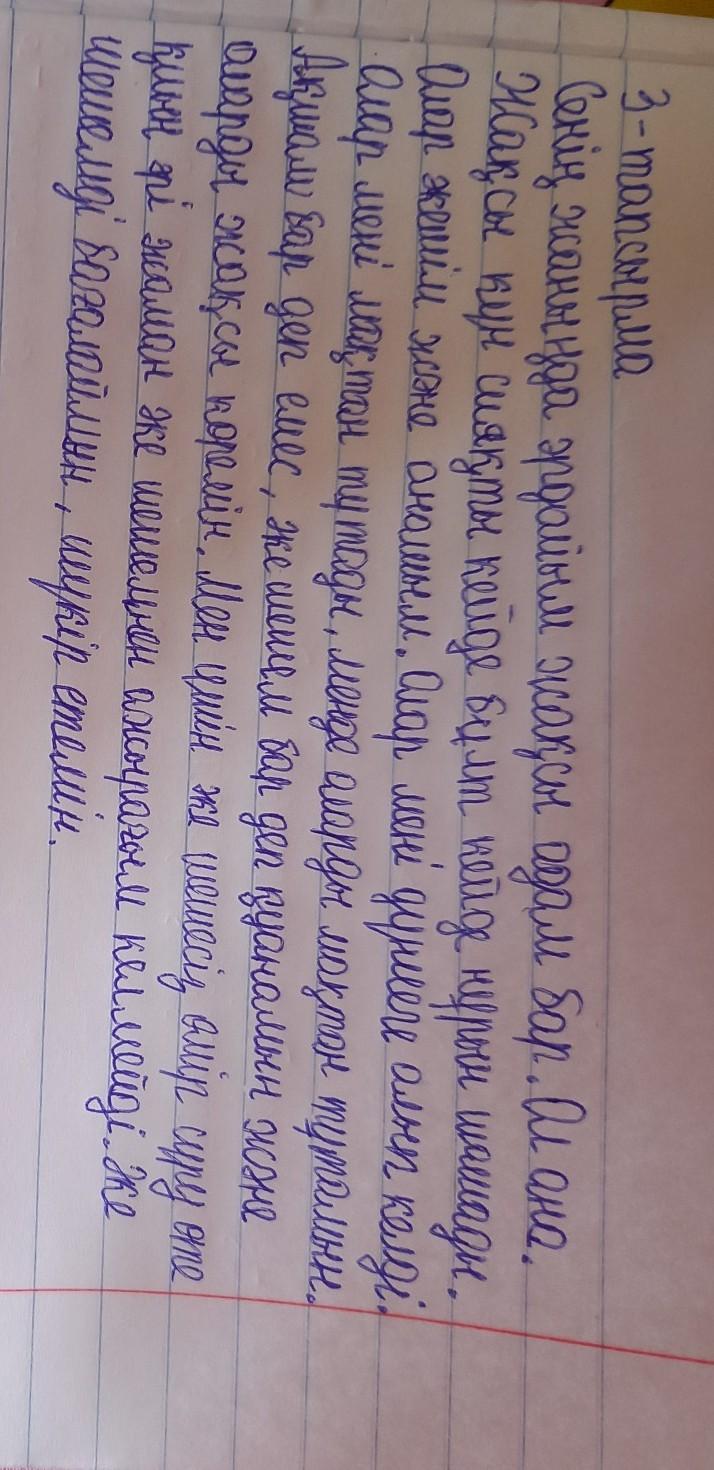 3-тапсырма
Сенің жаныңда әрдайым жақсы адам бар. Ол ана.
Жақсы күн сияқты кейде бұлт кейде нұрын шашады.
Олар жешім және анашым. Олар мені дүниеге алып келді.
Олар мені мақтан тұтады, менде оларды мақтан тұтамын.
Ақшам бар деп емес, жешешем бар деп қуанамын және
оларды жақсы көремін. Мен үшін же шешесіз өмір сүру өте
қиын әрі жаман же шешемнен ажырағым келмейді. Же
шешемді бағалаймын, шүкір етемін.